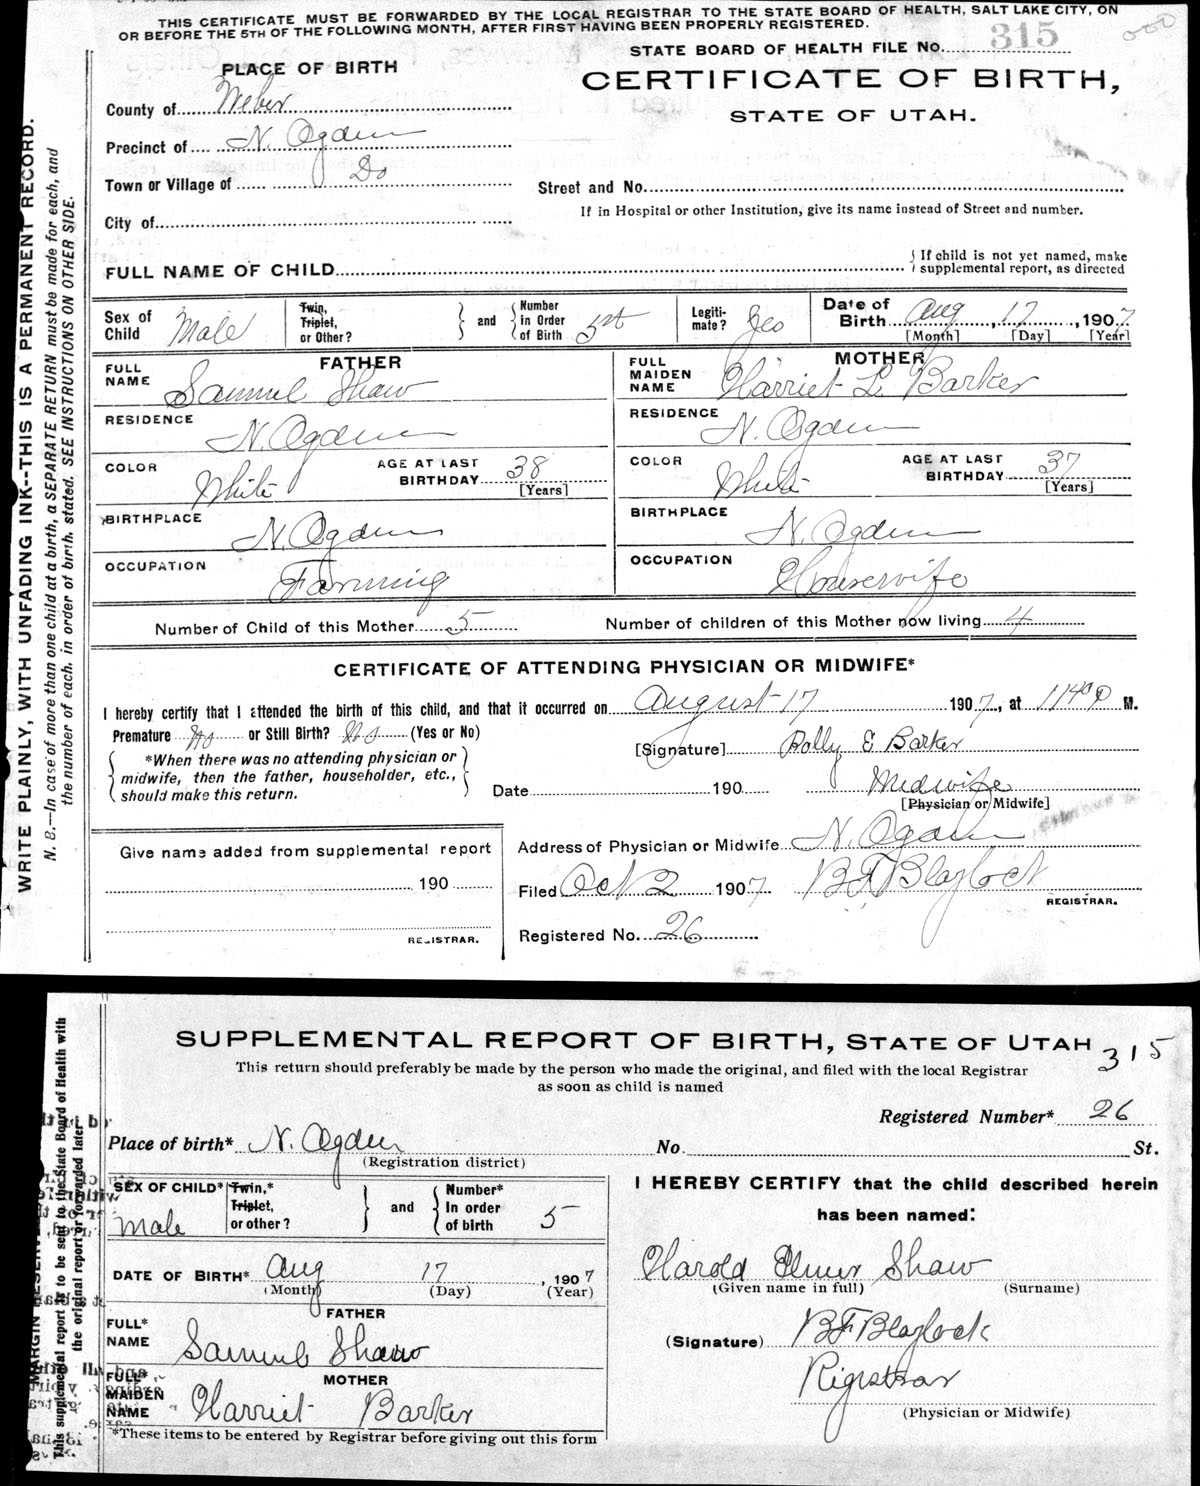 THIS CERTIFICATE MUST BE FORWARDED BY THE LOCAL REGISTRAR TO THE STATE BOARD OF HEALTH, SALT LAKE CITY, ON
OR BEFORE THE 5TH OF THE FOLLOWING MONTH, AFTER FIRST HAVING BEEN PROPERLY REGISTERED.
STATE BOARD OF HEALTH FILE No. 315
000
PLACE OF BIRTH
CERTIFICATE OF BIRTH,
STATE OF UTAH.
County of Weber
Precinct of N. Ogden
Town or Village of Do
Street and No.
City of
If in Hospital or other Institution, give its name instead of Street and number.
FULL NAME OF CHILD
If child is not yet named, make
supplemental report, as directed
Sex of Child Male
Twin, Triplet, or Other?
and
Number in Order of Birth 5st
Legiti-mate? Yes
Date of Birth Aug 17, 1907
[Month] [Day] [Year]
FATHER
FULL NAME Samuel Shaw
MOTHER
FULL MAIDEN NAME Harriet L. Barker
RESIDENCE N. Ogden
RESIDENCE N. Ogden
COLOR White
AGE AT LAST BIRTHDAY 38 [Years]
COLOR White
AGE AT LAST BIRTHDAY 37 [Years]
BIRTHPLACE N. Ogden
BIRTHPLACE N. Ogden
OCCUPATION Farming
OCCUPATION Housewife
Number of Child of this Mother 5
Number of children of this Mother now living 4
CERTIFICATE OF ATTENDING PHYSICIAN OR MIDWIFE*
I hereby certify that I attended the birth of this child, and that it occurred on August 17 1907, at 1140 P M.
Premature No or Still Birth? No (Yes or No)
*When there was no attending physician or
midwife, then the father, householder, etc.,
should make this return.
[Signature] Polly E Barker
Date 190 Midwife
[Physician or Midwife]
Give name added from supplemental report
190
REGISTRAR.
Address of Physician or Midwife N. Ogden
Filed Oct 2 1907 BF Blaylock
REGISTRAR.
Registered No. 26
WRITE PLAINLY, WITH UNFADING INK--THIS IS A PERMANENT RECORD.
N. B.—In case of more than one child at a birth, a SEPARATE RETURN must be made for each, and
the number of each, in order of birth, stated. SEE INSTRUCTIONS ON OTHER SIDE.
SUPPLEMENTAL REPORT OF BIRTH, STATE OF UTAH 315
This return should preferably be made by the person who made the original, and filed with the local Registrar
as soon as child is named
Registered Number* 26
Place of birth* N. Ogden No. St.
(Registration district)
SEX OF CHILD* Male
Twin,* Triplet, or other?
and
Number* In order of birth 5
DATE OF BIRTH* Aug 17, 1907
(Month) (Day) (Year)
FATHER
FULL* NAME Samuel Shaw
MOTHER
FULL* MAIDEN NAME Harriet Barker
*These items to be entered by Registrar before giving out this form
I HEREBY CERTIFY that the child described herein
has been named:
Harold Elmer Shaw
(Given name in full) (Surname)
(Signature) BF Blaylock
Rigistrar
(Physician or Midwife)
This supplemental report is to be sent to the State Board of Health with
the original report or forwarded later